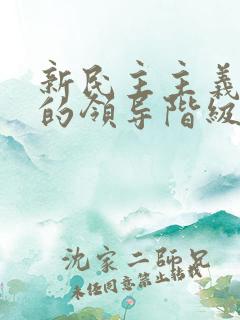 新民主主義
的領导階級
沈家二師兄
未经同意禁止转载